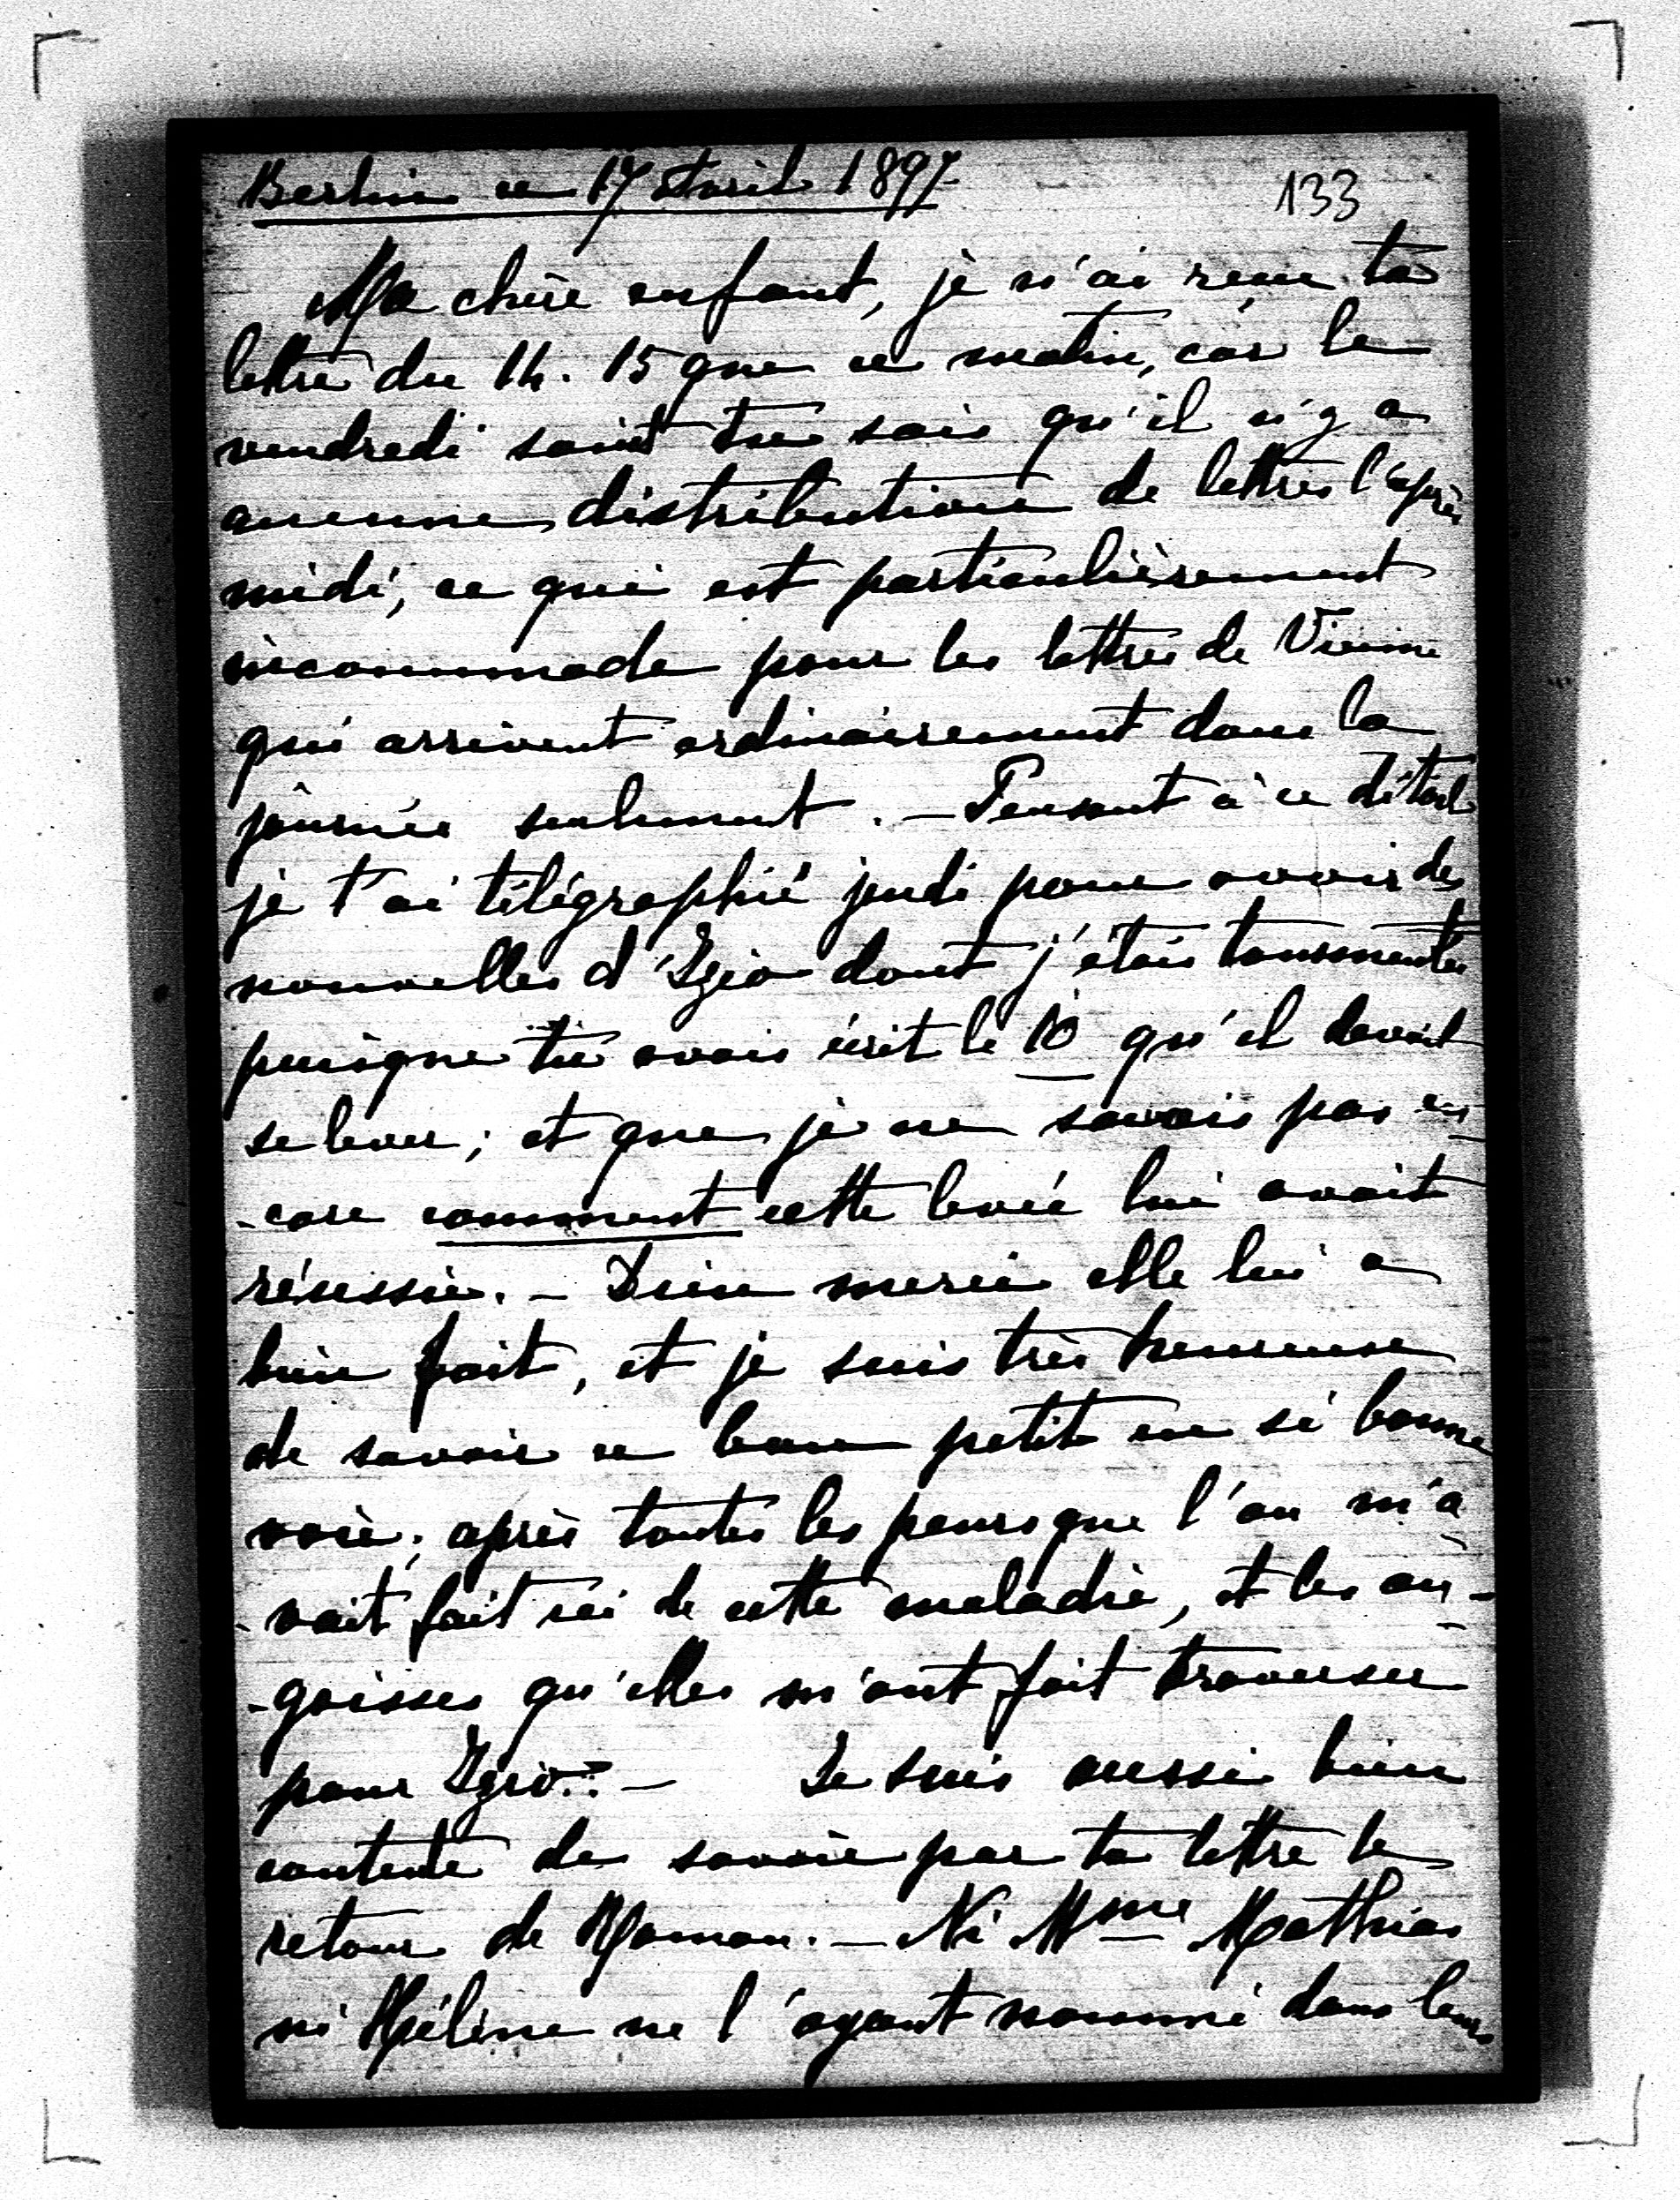 Berlin ce 17 Avril 1897
133
Ma chère enfant, je n'ai reçu ta
lettre du 14. 15 que ce matin, car le
vendredi saint tu sais qu'il n'y a
aucune distribution de lettres l'après
midi, ce qui est particulièrement
incommode pour les lettres de Vienne
qui arrivent ordinairement dans la
journée seulement. - Pensant à ce détail
je t'ai télégraphié jeudi pour avoir des
nouvelles d'Izio dont j'étais tourmentée
puisque tu avais écrit le 10 qu'il devait
se lever; et que je ne savais pas en-
-core comment cette levée lui avait
réussie. - Dieu merci elle lui a
bien fait, et je suis très heureuse
de savoir ce bon petit en si bonne
voie; après toutes les peurs que l'on m'a-
-vait fait ici de cette maladie, et les an-
-goisses qu'elles m'ont fait traverser
pour Izio. - Je suis aussi bien
contente de savoir par ta lettre le
retour de Maman. - Ni Mme Mathias
ni Hélène ne l'ayant nommé dans leurs